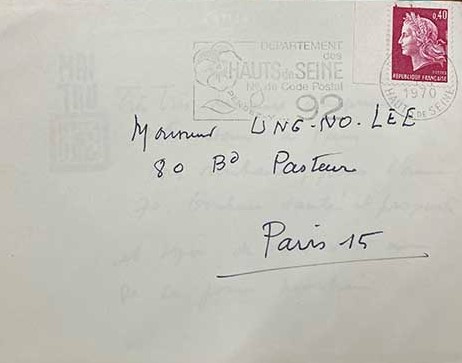 DÉPARTEMENT
des
HAUTS de SEINE
No. de Code Postal
PENSEZ Y
92
0,40
POSTES
RÉPUBLIQUE FRANÇAISE
1970
HAUTS DE SEINE
Monsieur UNG-NO-LEE
80 Bd Pasteur
Paris 15